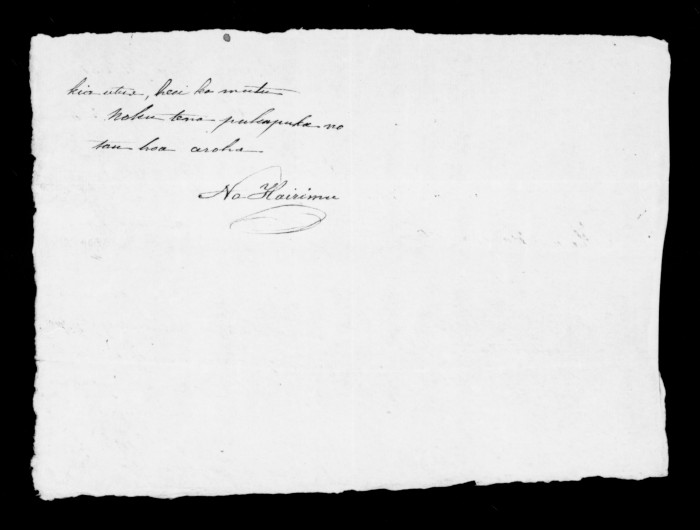 kia utua, heoi ka mutu
Noku tena pukapuka no
tau hoa aroha
Na Hairimu